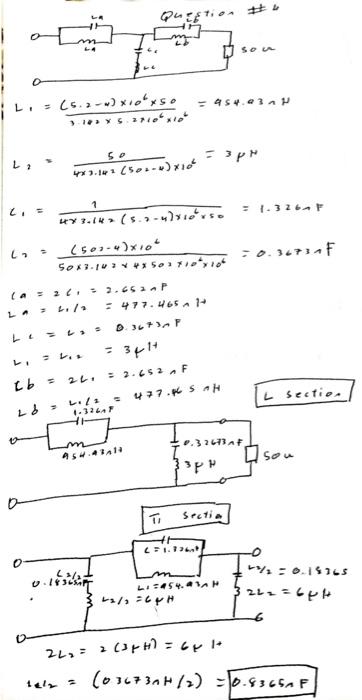 Question #4
La
Lb
Ca
C1
Lb
Lc
50u
L1 = (5.2-4)×10⁶×50 / 3.142×5.2×10⁶×10⁶ = 954.93nH
L2 = 50 / 4×3.142(502-4)×10⁶ = 3μH
C1 = 1 / 4×3.142(5.2-4)×10⁶×50 = 1.326nF
C2 = (502-4)×10⁶ / 50×3.142×4×502×10⁶×10⁶ = 0.3673nF
Ca = 2C1 = 2.652nF
La = L1/2 = 477.465nH
Lc = L2 = 0.3673nF
L1 = L12 = 3μH
Cb = 2C1 = 2.652nF
Lb = L1/2 = 477.465nH
L section
1.326nF
954.93nH
0.32673nF
3μH
50u
Π Section
C=1.326nF
L1=954.93nH
C2/2
0.18365nF
L2/2=6μH
C2/2 = 0.18365
2L2 = 6μH
2L2 = 2(3μH) = 6μH
= (03673nH/2) = 0.8365nF